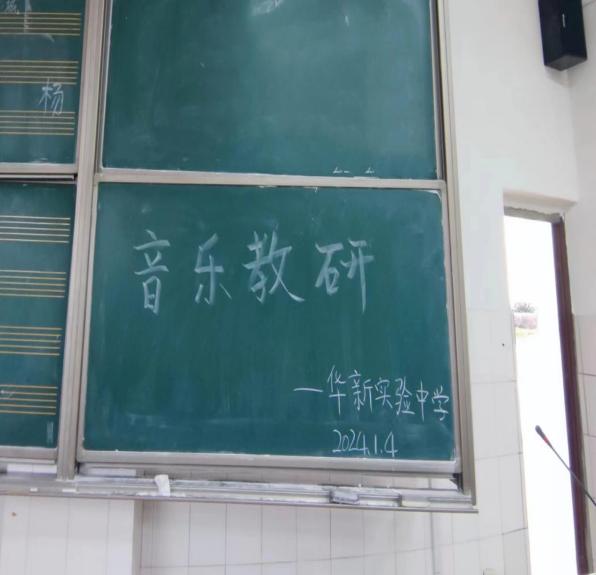 杨
音乐教研
一华新实验中学
2024.1.4